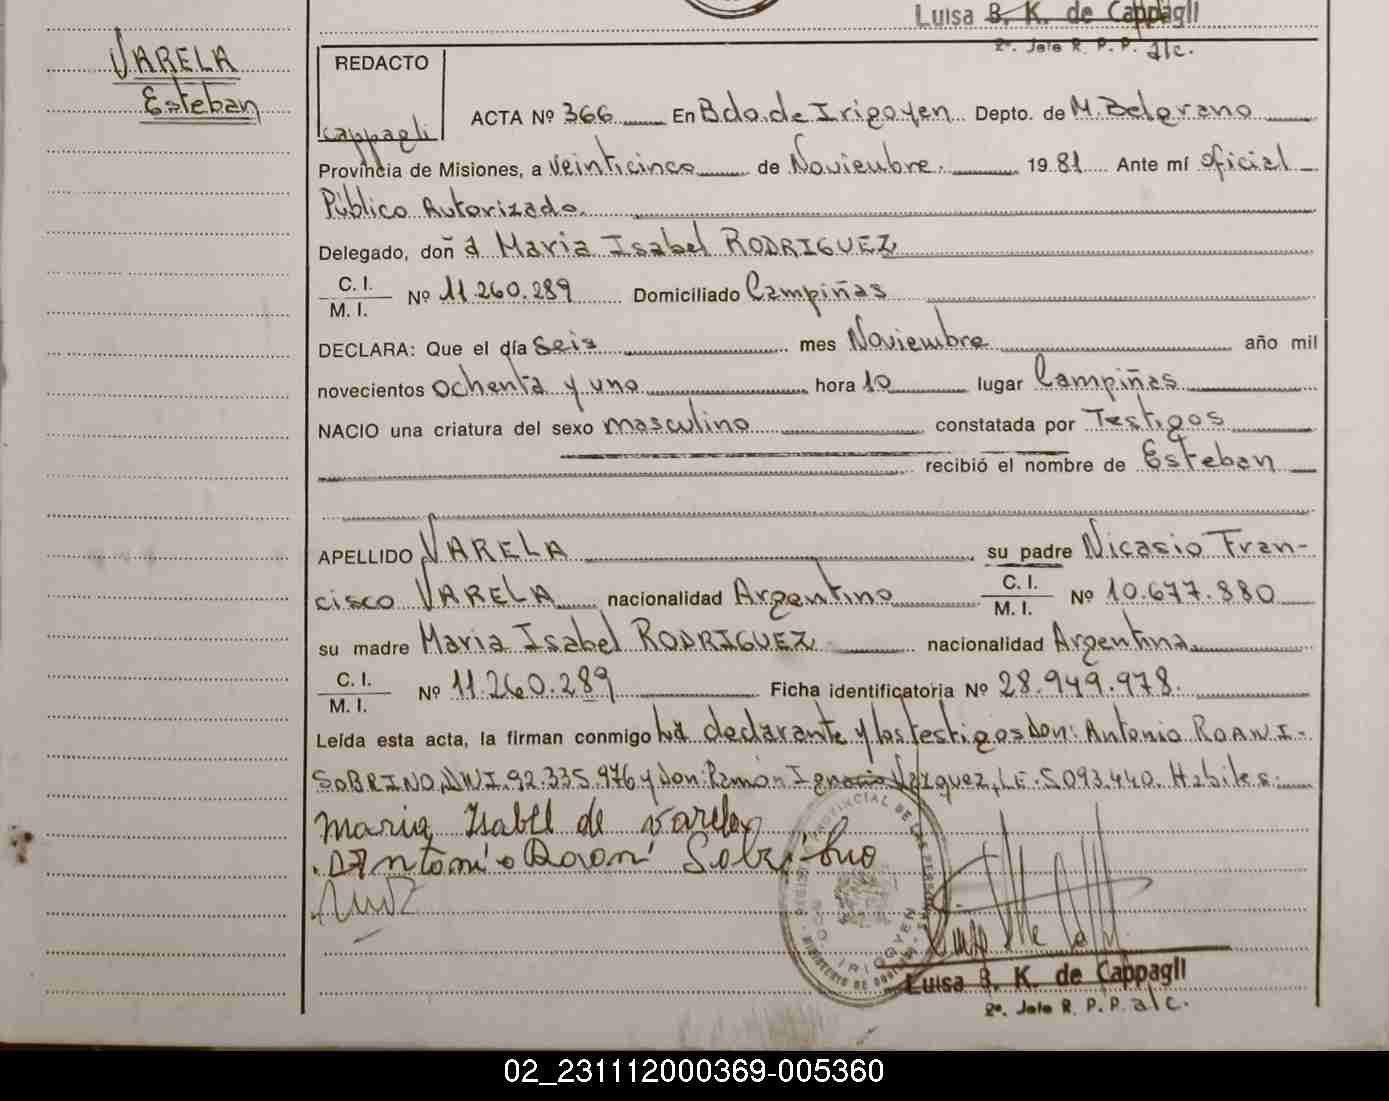 Luisa B. K. de Cappagli
2º. Jefe R. P. P. a/c.
VARELA
Esteban
REDACTO
Cappagli
ACTA Nº 366 En Bdo. de Irigoyen Depto. de M. Belgrano
Provincia de Misiones, a Veinticinco de Noviembre 1981 Ante mí Oficial
Público Autorizado
Delegado, doña Maria Isabel RODRIGUEZ
C. I.
M. I. Nº 11.260.289 Domiciliado Campiñas
DECLARA: Que el día Seis mes Noviembre año mil
novecientos Ochenta y uno hora 10 lugar Campiñas
NACIO una criatura del sexo masculino constatada por Testigos
recibió el nombre de Esteban
APELLIDO VARELA su padre Nicasio Fran-
cisco VARELA nacionalidad Argentino C. I. M. I. Nº 10.677.880
su madre Maria Isabel RODRIGUEZ nacionalidad Argentina
C. I.
M. I. Nº 11.260.289 Ficha identificatoria Nº 28.949.978.
Leída esta acta, la firman conmigo la declarante y los testigos Don: Antonio ROANI-
SOBRINO, DNI. 92.335.976 y Don: Ramón Ignacio Vazquez, LE. 5.093.440. Habiles.
Maria Isabel de Varela
Antonio Roani Sobrino
Luisa B. K. de Cappagli
2º. Jefe R. P. P. a/c.
02_231112000369-005360